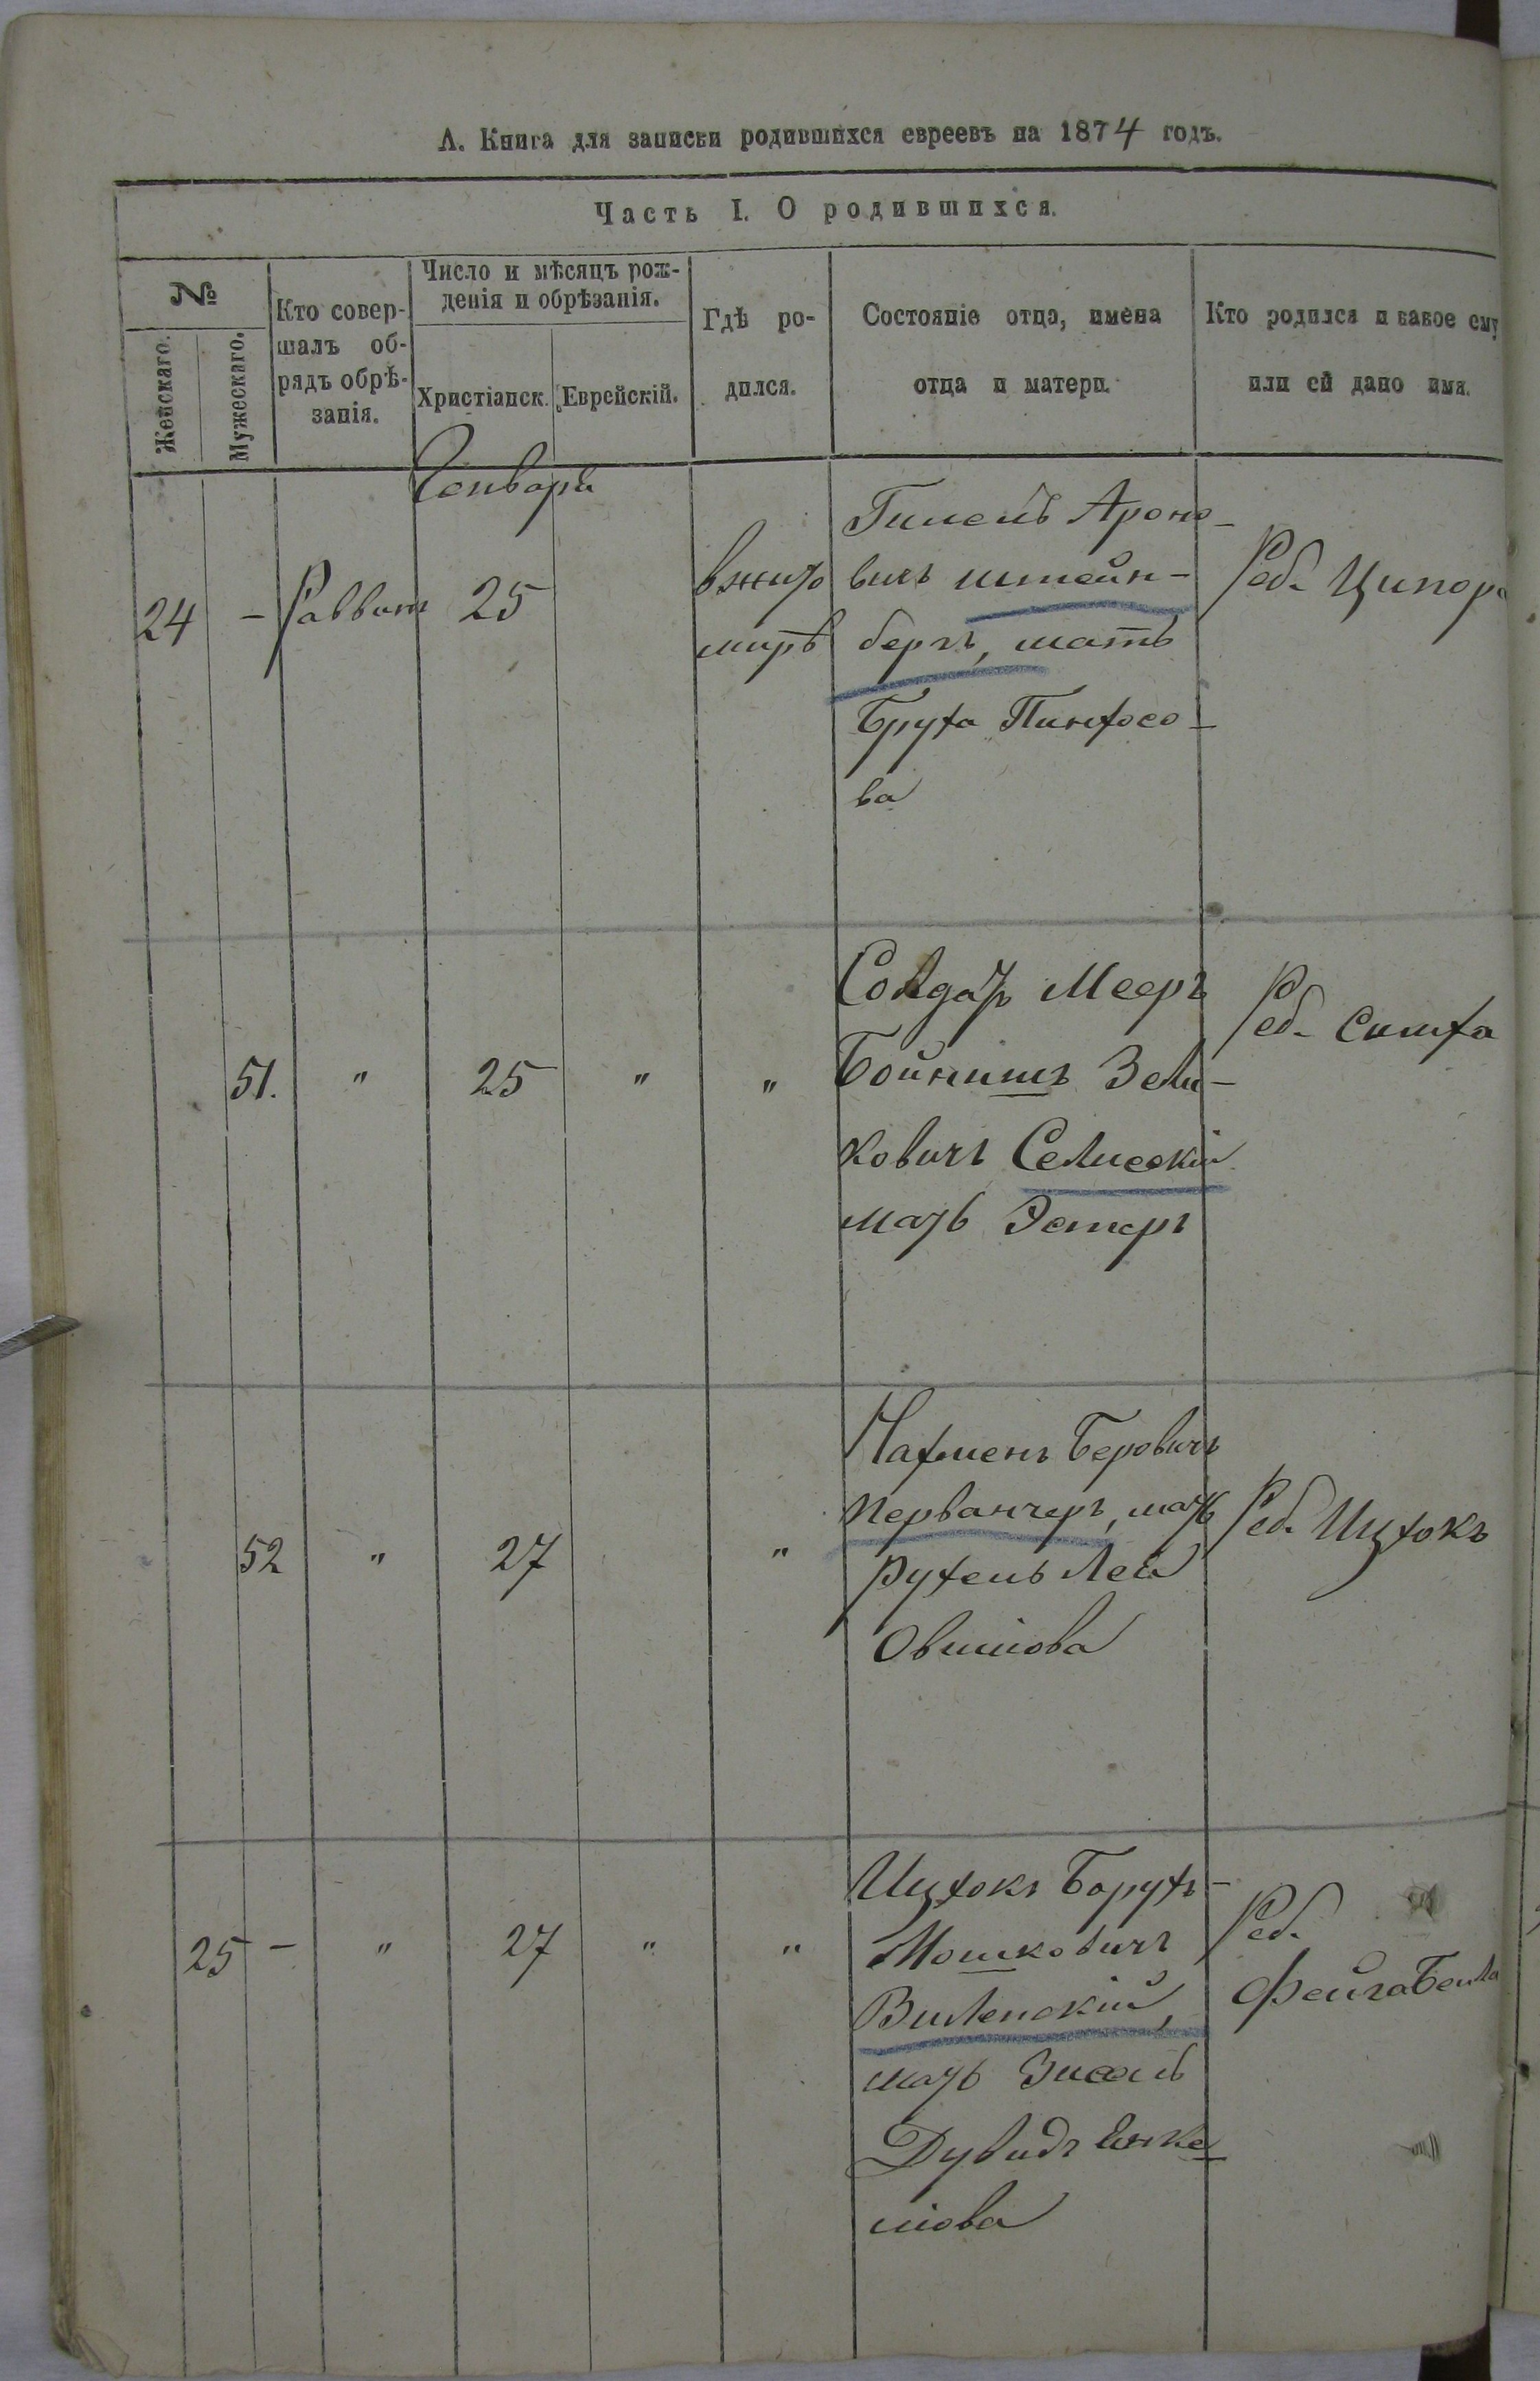 А. Книга для записки родившихся евреевъ на 1874 годъ.
Часть I. О родившихся.
№
Женскаго.
Мужескаго.
Кто совер-
шалъ об-
рядъ обрѣ-
занія.
Число и мѣсяцъ рож-
денія и обрѣзанія.
Христіанск.
Еврейскій.
Гдѣ ро-
дился.
Состояніе отца, имена
отца и матери.
Кто родился и какое ему
или ей дано имя.
Генваря
24 - Раввинъ 25
вжито
мирѣ
Гилель Ароно-
вичъ штейн-
бергъ, мать
Бруха Пинхосо-
ва
Реб. Ципора
51. " 25 " "
Солдатъ Мееръ
Бойнишъ Зели-
ковичъ Селисскій
мать Эстеръ
Реб. Симха
52 " 27 "
Нахменъ Беровичъ
Перванчеръ, мать
Рухель Лея
Овшіова
Реб. Ицхокъ
25 - " 27 " "
Ицхокъ Борухъ-
Мошковичъ
Виленскій,
мать Зисель
Дувидъ Янке-
ліова
Реб.
Фейга Бейла